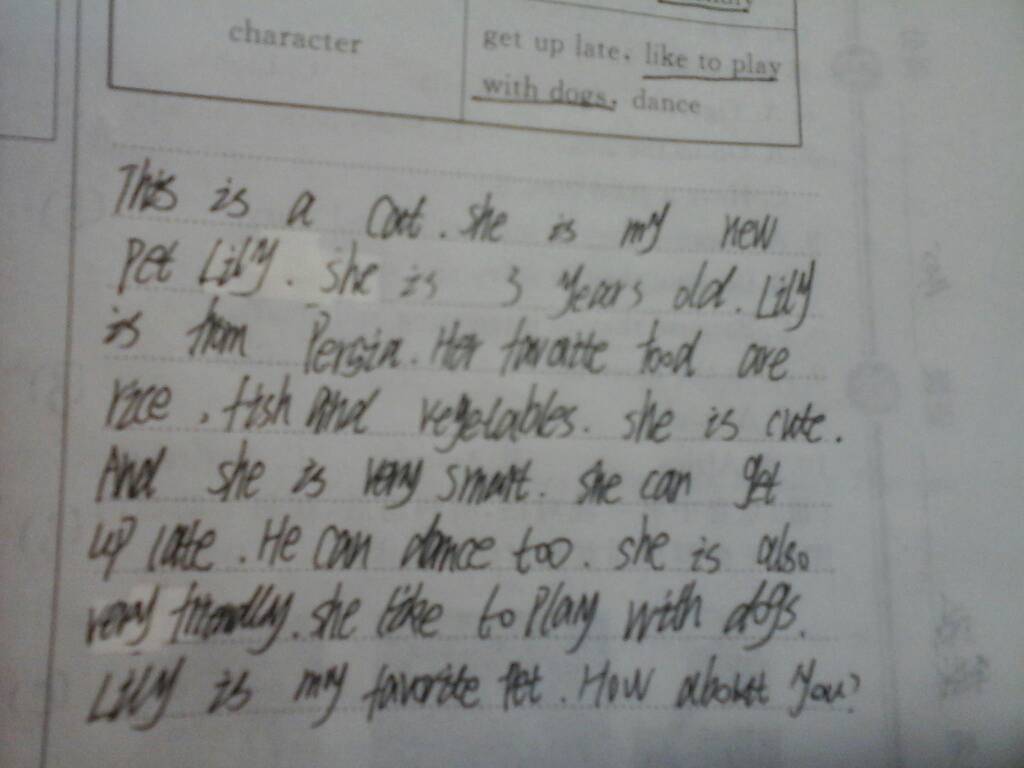 character
get up late, like to play
with dogs, dance
This is a Cat. she is my new
Pet Lily. she is 3 years old. Lily
is from Persia. Her favorite food are
rice, fish And vegetables. she is cute.
And she is very smart. she can get
up late. He can dance too. she is also
very friendly. she like to Play with dogs.
Lily is my favorite Pet. How about you?